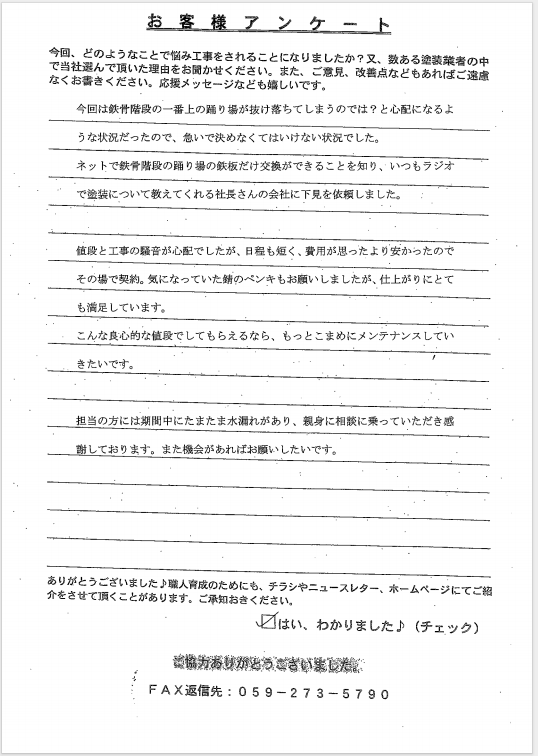 お客様アンケート
今回、どのようなことで悩み工事をされることになりましたか？又、数ある塗装業者の中
で当社選んで頂いた理由をお聞かせください。また、ご意見、改善点などもあればご遠慮
なくお書きください。応援メッセージなども嬉しいです。
今回は鉄骨階段の一番上の踊り場が抜け落ちてしまうのでは？と心配になるよ
うな状況だったので、急いで決めなくてはいけない状況でした。
ネットで鉄骨階段の踊り場の鉄板だけ交換ができることを知り、いつもラジオ
で塗装について教えてくれる社長さんの会社に下見を依頼しました。
値段と工事の騒音が心配でしたが、日程も短く、費用が思ったより安かったので
その場で契約。気になっていた錆のペンキもお願いしましたが、仕上がりにとて
も満足しています。
こんな良心的な値段でしてもらえるなら、もっとこまめにメンテナンスしてい
きたいです。
担当の方には期間中にたまたま水漏れがあり、親身に相談に乗っていただき感
謝しております。また機会があればお願いしたいです。
ありがとうございました♪職人育成のためにも、チラシやニュースレター、ホームページにてご紹
介をさせて頂くことがあります。ご承知おきください。
☑はい、わかりました♪（チェック）
ご協力ありがとうございました。
ＦＡＸ返信先：０５９－２７３－５７９０